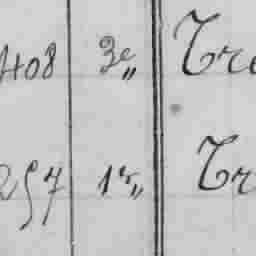 408 3e„ Tre
257 1er„ Tr